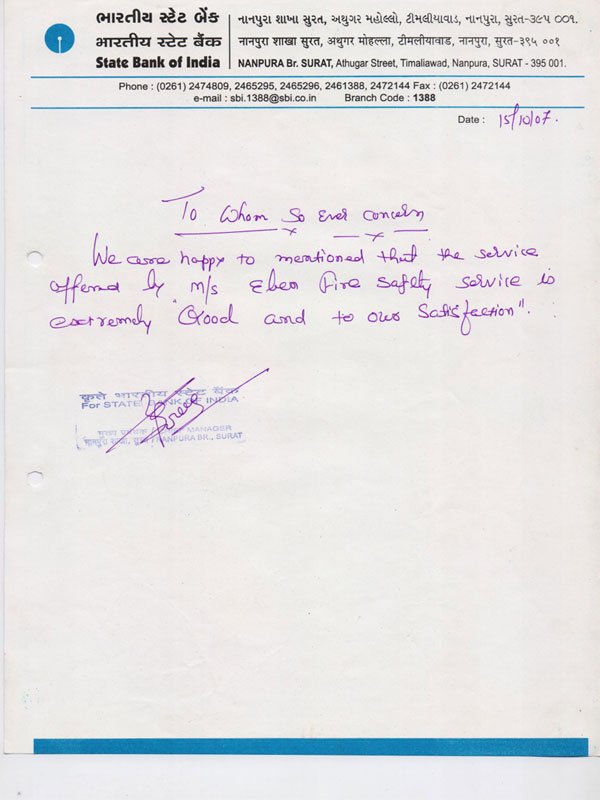 ભારતીય સ્ટેટ બેંક
भारतीय स्टेट बैंक
State Bank of India
નાનપુરા શાખા સુરત, અથુગર મહોલ્લો, ટીમલીયાવાડ, નાનપુરા, સુરત-૩૯૫ ૦૦૧.
नानपुरा शाखा सुरत, अथुगर मोहल्ला, टीमलीयावाड, नानपुरा, सुरत-३९५ ००१
NANPURA Br. SURAT, Athugar Street, Timaliawad, Nanpura, SURAT - 395 001.
Phone : (0261) 2474809, 2465295, 2465296, 2461388, 2472144 Fax : (0261) 2472144
e-mail : sbi.1388@sbi.co.in Branch Code : 1388
Date : 15/10/07.
To Whom So Ever Concern
We are happy to mentioned that the service
offered by m/s Eben Fire Safety service is
extremely "Good and to our Satisfaction".
कृते भारतीय स्टेट बैंक
For STATE BANK OF INDIA
मुख्य प्रबंधक MANAGER
नानपुरा शाखा, सुरत / NANPURA BR., SURAT